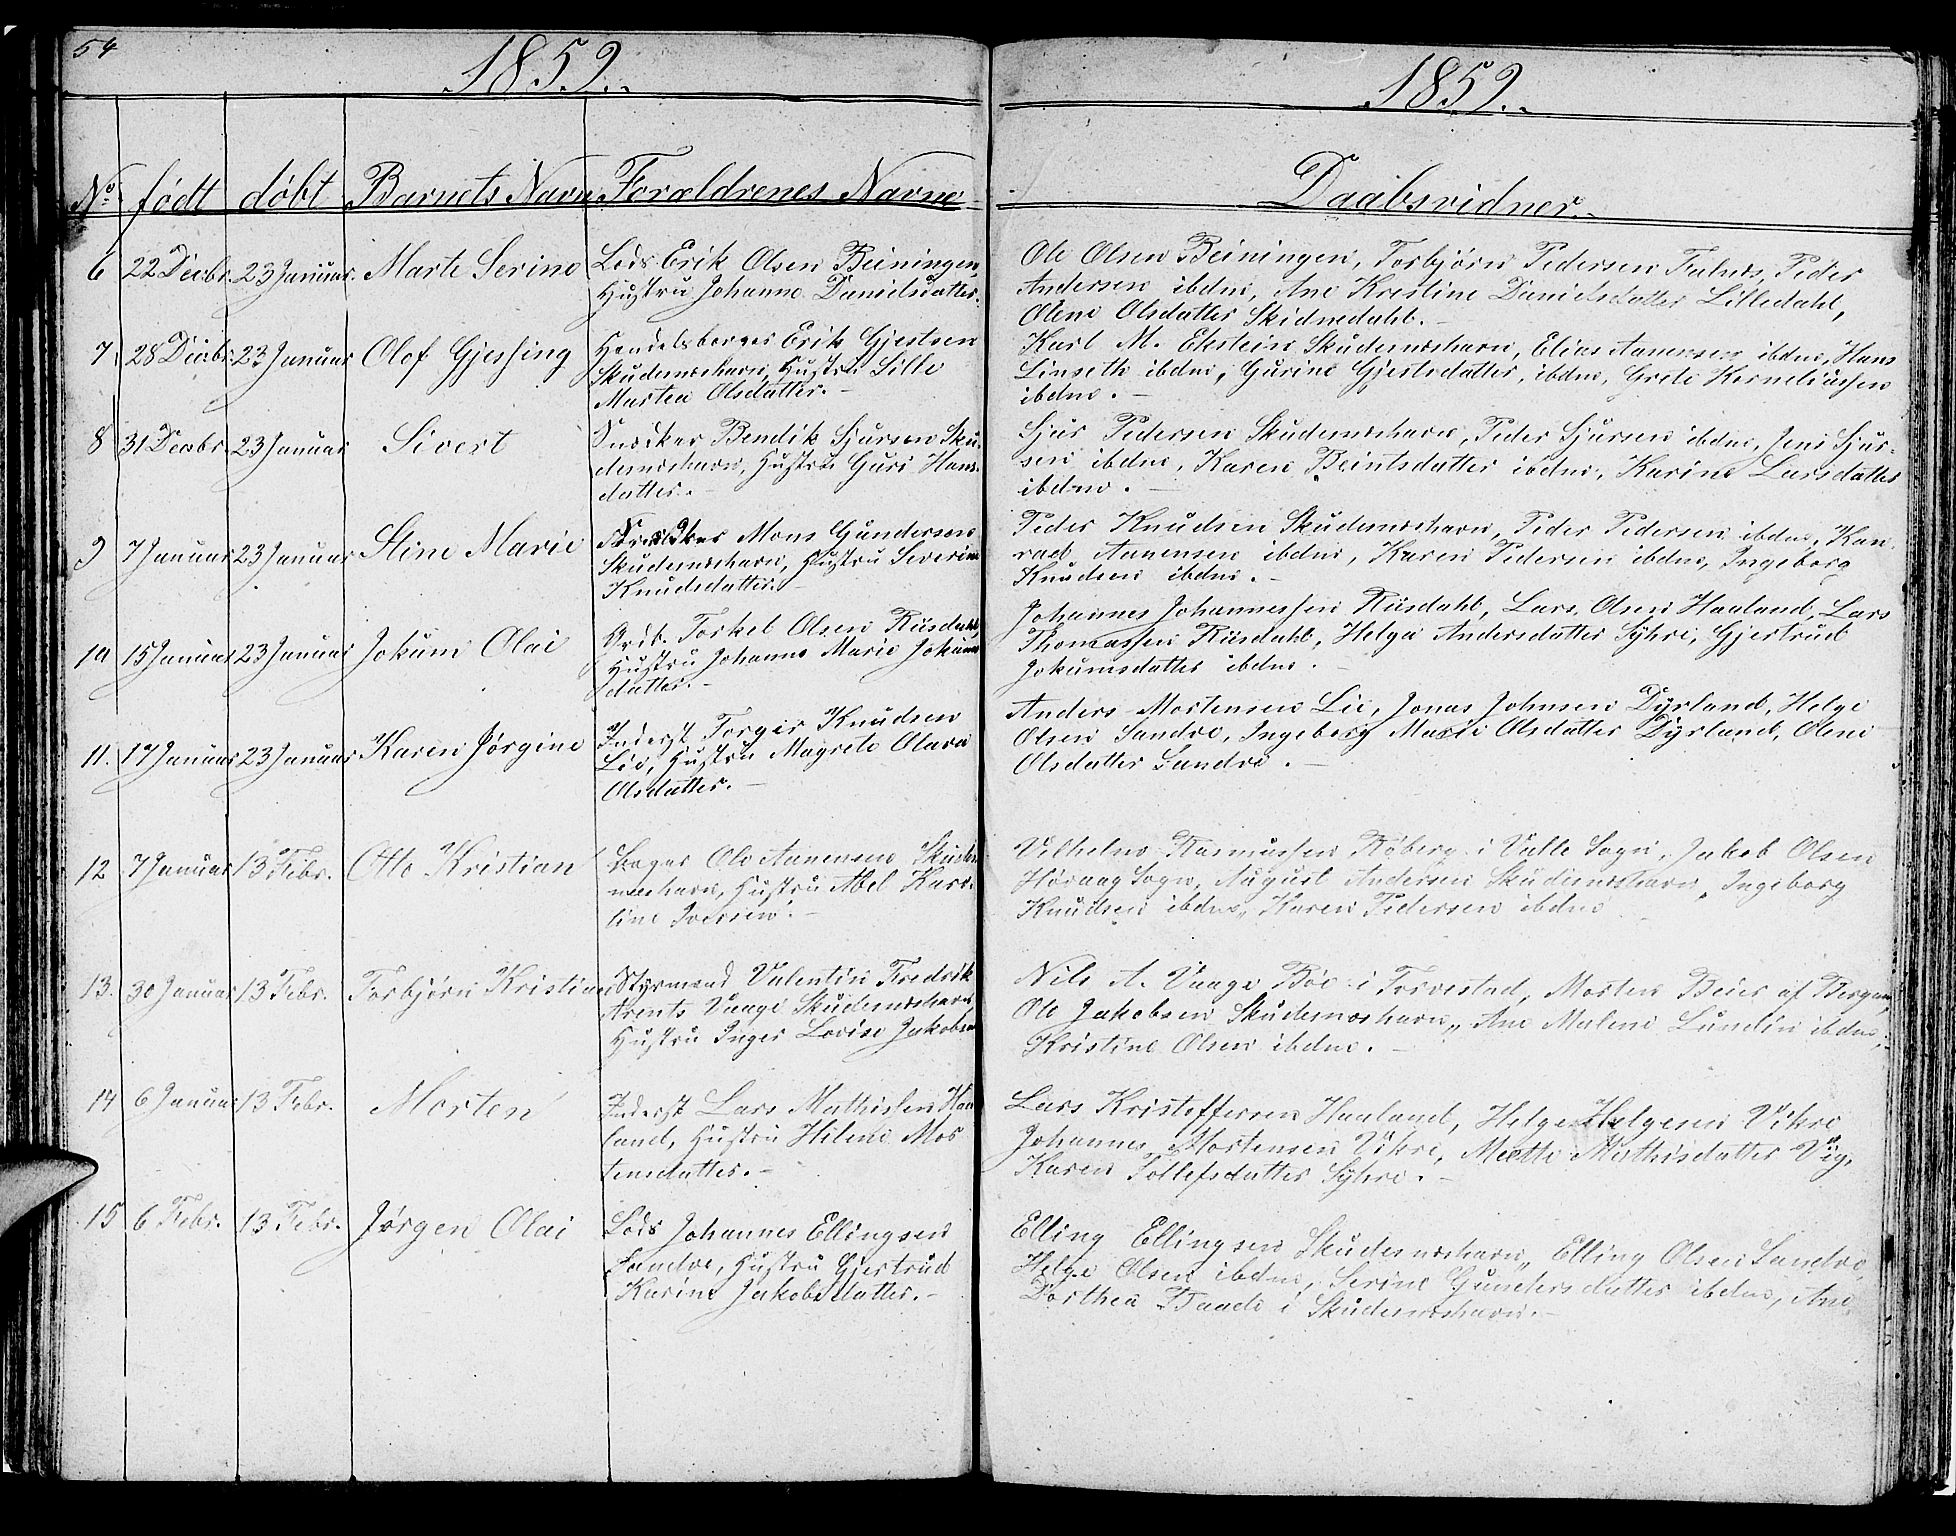 54
1859.
1859.
No. født døbt Barnets Navn Forældrenes Navne
Daabsvidner.
6 22 Decbr. 23 Januar. Marte Serine
Lods Erik Olsen Beiningen,
Hustru Johanne Danielsdatter.
Ole Olsen Beiningen, Torbjørn Pedersen Peder
Andersen ibdm, Ane Kristine Danielsdatter Lilledahl,
Olene Olsdatter Skidnedahl.
7 28 Decbr. 23 Januar Olof Gjessing
Handelsborger Erik Gjertsen
Skudesneshavn, Hustru Sille
Martea Olsdatter.
Karl M. Ekstein Skudesneshavn, Elias Aanensen ibdm, Hans
Linseth ibdm, Gurine Gjertsdatter, ibdm, Grete Korneliussen
ibdm.
8 31 Decbr. 23 Januar Sivert
Snedker Bendik Sjursen Sku-
desneshavn, Hustru Guri Hans-
datter.
Sjur Pedersen Skudesneshavn, Peder Sjursen ibdm, Jens Sjur-
sen ibdm, Karen Beintsdatter ibdm, Karine Larsdatter
ibdm.
9 7 Januar 23 Januar Stine Marie
Snedker Mons Gundersen
Skudesneshavn, Hustru Severine
Knudsdatter.
Peder Knudsen Skudesneshavn, Peder Pedersen ibdm, Kon-
rad Aanensen ibdm, Karen Pedersen ibdm, Ingeborg
Knudsen ibdm.
10 15 Januar 23 Januar Jokum Olai
Grdb. Torkel Olsen Risdahl,
Hustru Johanne Marie Jokums-
datter.
Johannes Johannessen Risdahl, Lars Olsen Haaland, Lars
Thomassen Risdahl, Helga Andersdatter Syhre, Gjertrud
Jokumsdatter ibdm.
11. 17 Januar 23 Januar Karen Jørgine
Inderst Torger Knudsen
Lie, Hustru Magrete Olava
Olsdatter.
Anders Mortensen Lie, Jonas Johnsen Dyrland, Helge
Olsen Sandve, Ingeborg Marie Olsdatter Dyrland, Oleni
Olsdatter Sandve.
12 7 Januar 13 Febr. Otto Kristian
Bager Ole Aanensen Skudes-
neshavn, Hustru Abel Karo-
line Iversen.
Vilhelm Rasmussen Røberg i Valle Sogn, Jakob Olsen
Høvaag Sogn, August Andersen Skudesneshavn, Ingeborg
Knudsen ibdm, Karen Pedersen ibdm
13. 30 Januar 13 Febr. Torbjørn Kristian
Styrmand Valentin Fredrik
Arents Vaage Skudesneshavn,
Hustru Inger Lovise Jakobsen
Nils A. Vaage Bøe i Torvestad, Morten Beier af Bergen,
Ole Jakobsen Skudesneshavn, Ane Malene Lundin ibdm,
Kristine Olsen ibdm.
14 6 Januar 13 Febr. Morten
Inderst Lars Mathisen Haa-
land, Hustru Helene Mor-
tensdatter.
Lars Kristoffersen Haaland, Helge Helgesen Vikre
Johannes Mortensen Vikre, Mette Mathisdatter Vig,
Karen Tollefsdatter Syhre.
15 6 Febr. 13 Febr. Jørgen Olai
Lods Johannes Ellingsen
Sandve, Hustru Gjertrud
Karine Jakobsdatter.
Elling Ellingsen Skudesneshavn, Elling Olsen Sandve,
Helge Olsen ibdm, Serine Gundersdatter ibdm, Ane
Dorthea Baade i Skudesneshavn.